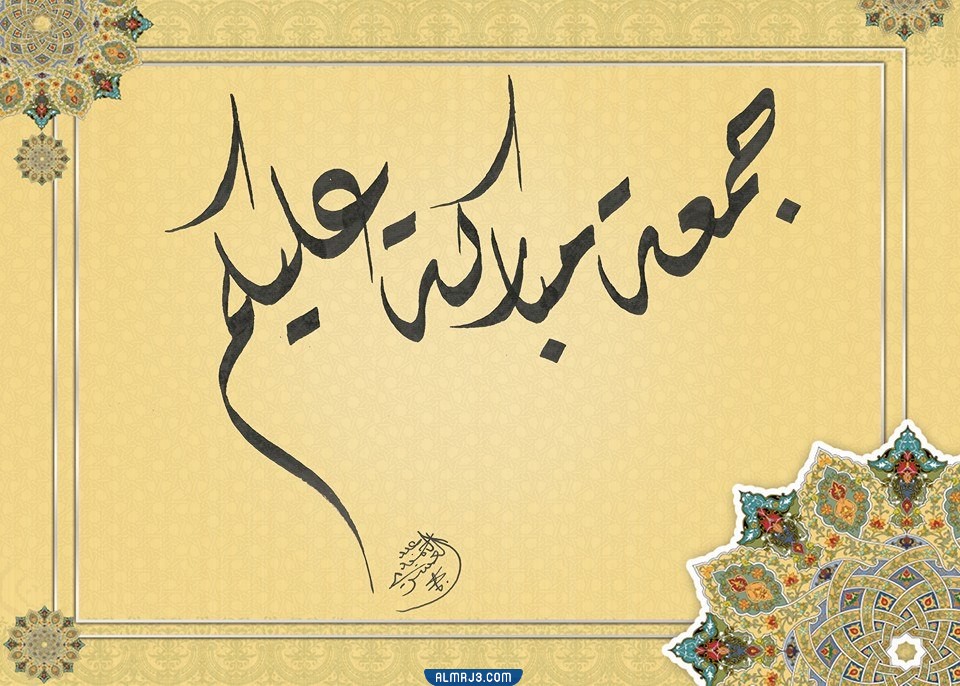 جمعة مباركة عليكم
ALMRJ3.COM